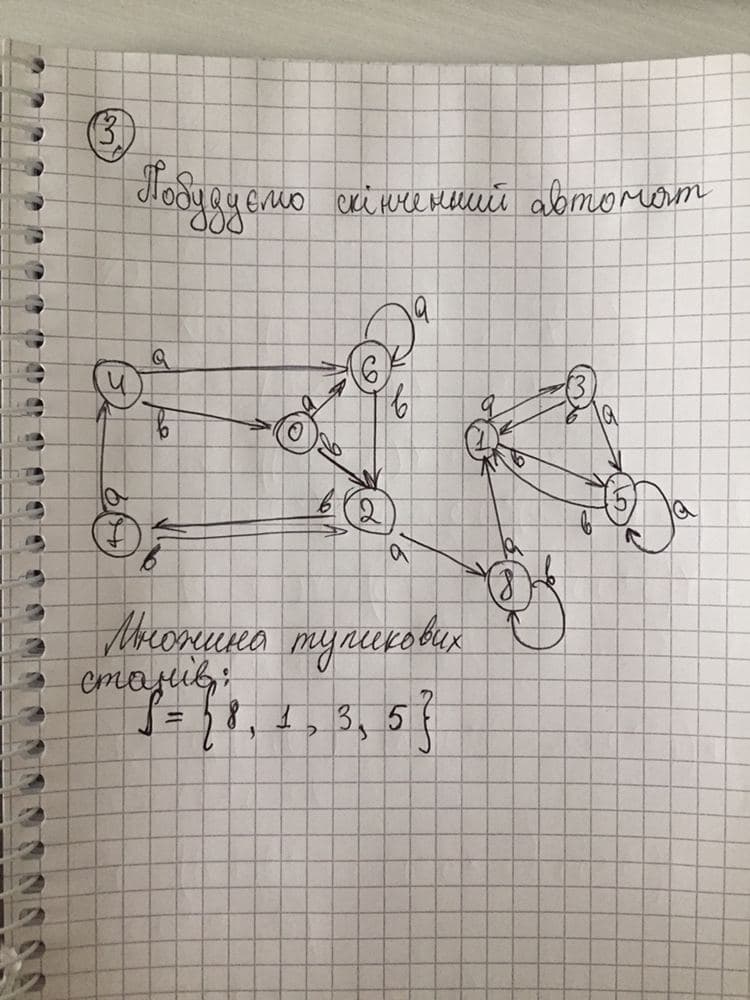 3.
Побудуємо скінченний автомат
a
4 a 6 3
b 0 a b a b a
b 1 b
a 2 5 a
7 b b a b
a 8 b
Множина тупикових
станів:
S = { 8, 1, 3, 5 }